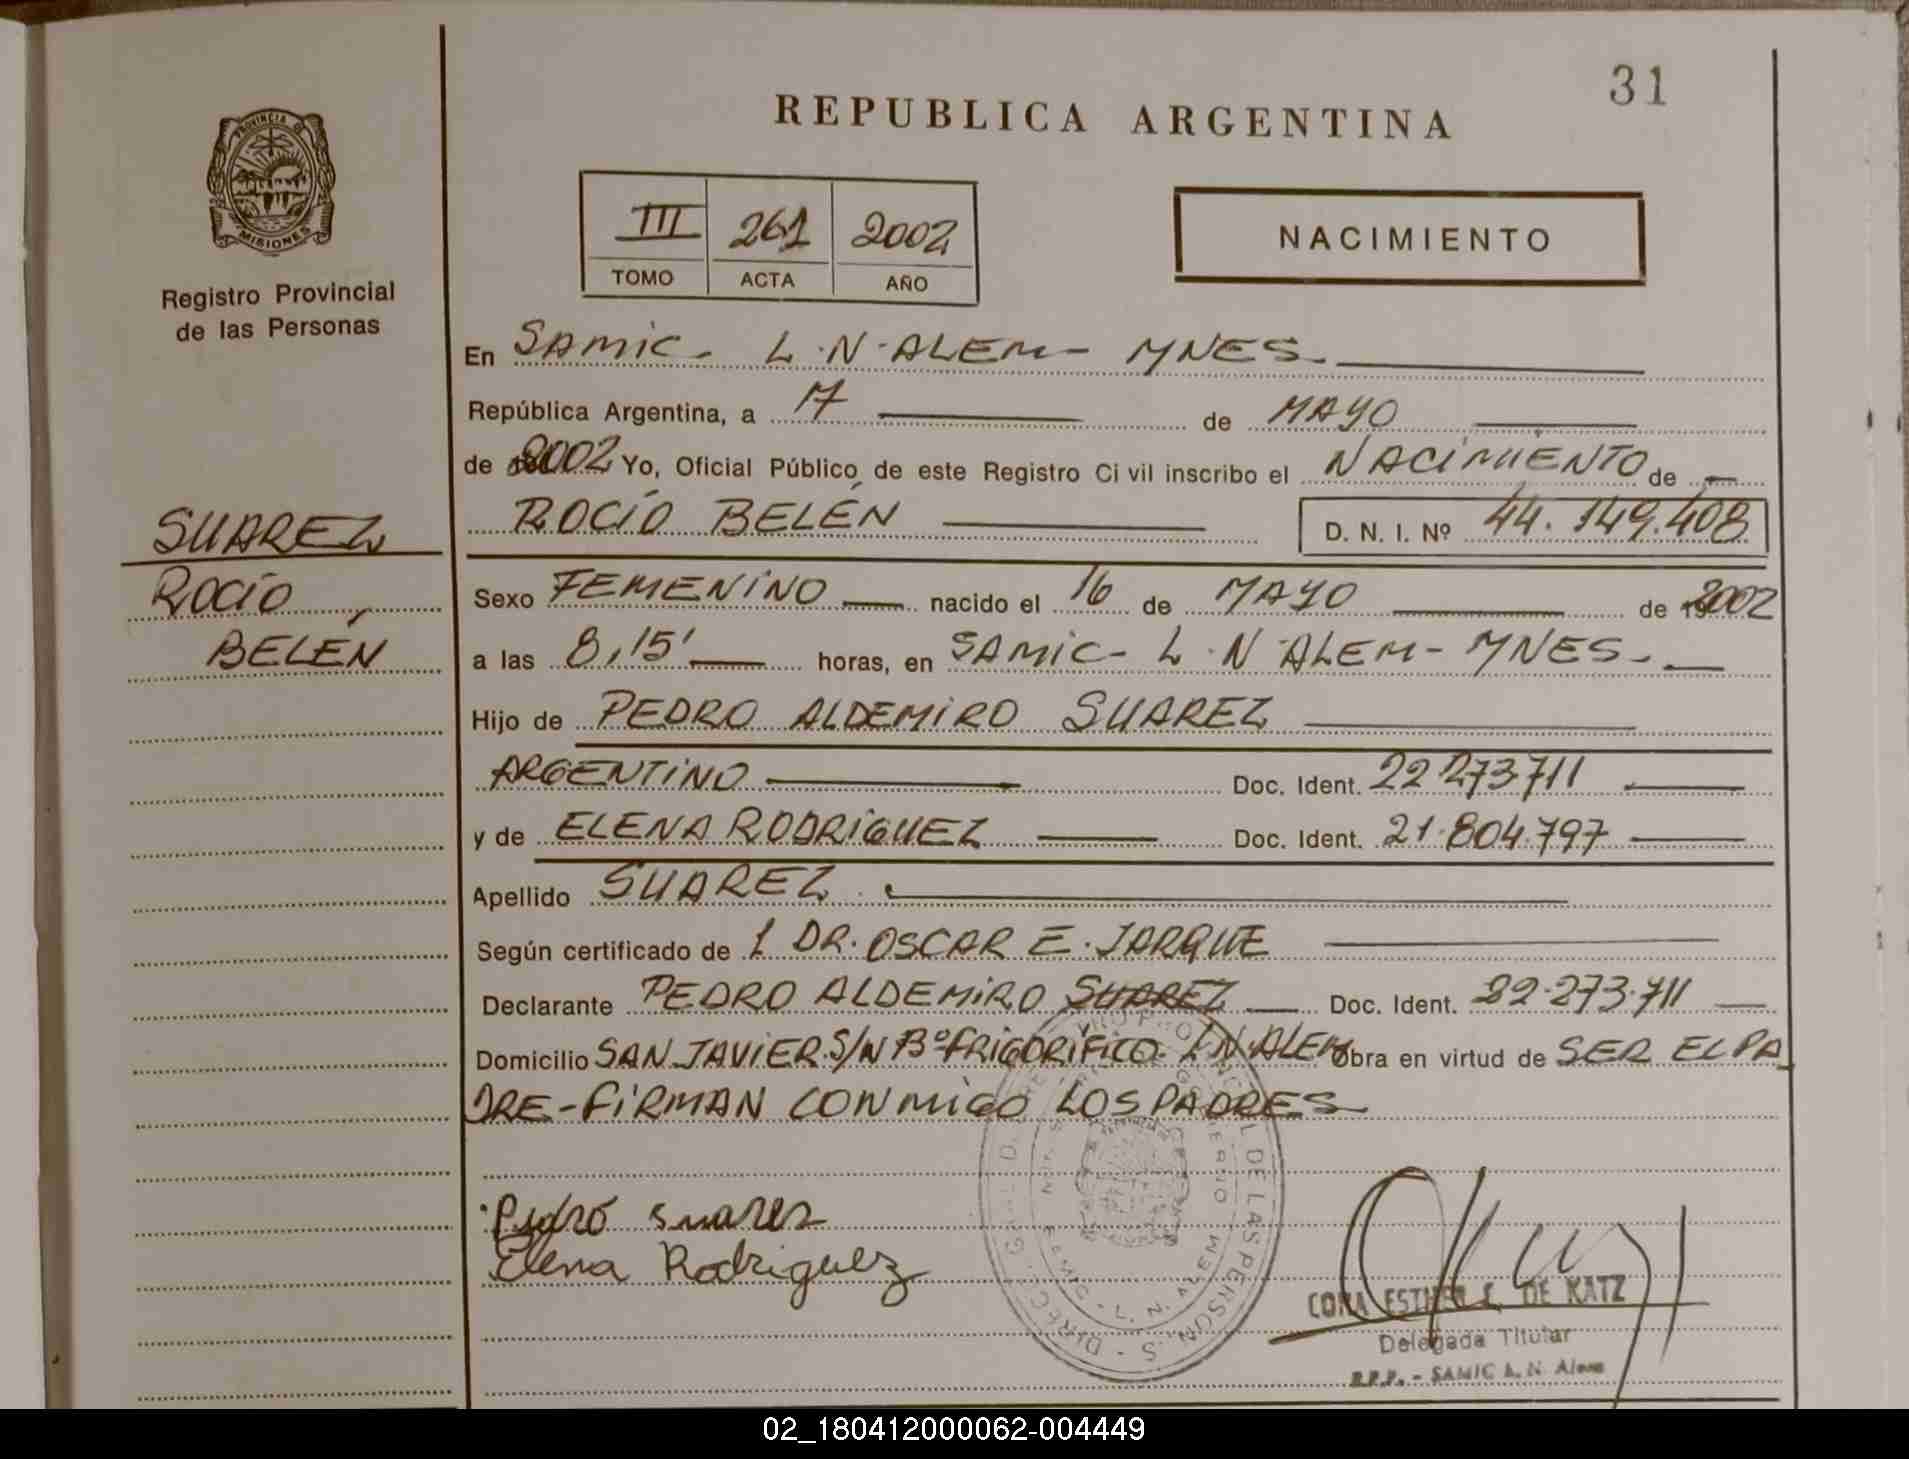 31
REPUBLICA ARGENTINA
PROVINCIA DE
MISIONES
Registro Provincial
de las Personas
III 261 2002
TOMO ACTA AÑO
NACIMIENTO
En SAMIC - L.N. ALEM - MNES.
República Argentina, a 17 de MAYO
de 2002 Yo, Oficial Público de este Registro Civil inscribo el NACIMIENTO de
ROCÍO BELÉN D. N. I. Nº 44.149.408
SUAREZ
ROCÍO
BELÉN
Sexo FEMENINO nacido el 16 de MAYO de 2002
a las 8,15' horas, en SAMIC - L.N. ALEM - MNES.
Hijo de PEDRO ALDEMIRO SUAREZ
ARGENTINO Doc. Ident. 22 273 711
y de ELENA RODRÍGUEZ Doc. Ident. 21.804.797
Apellido SUAREZ
Según certificado de 1 DR. OSCAR E. JARQUE
Declarante PEDRO ALDEMIRO SUAREZ Doc. Ident. 22.273.711
Domicilio SAN JAVIER S/N Bº FRIGORÍFICO L N. ALEM Obra en virtud de SER EL PA
DRE - FIRMAN CONMIGO LOS PADRES
Pedro Suarez
Elena Rodriguez
CORA ESTHER DE KATZ
Delegada Titular
R.P.P. - SAMIC L. N. Alem
02_180412000062-004449